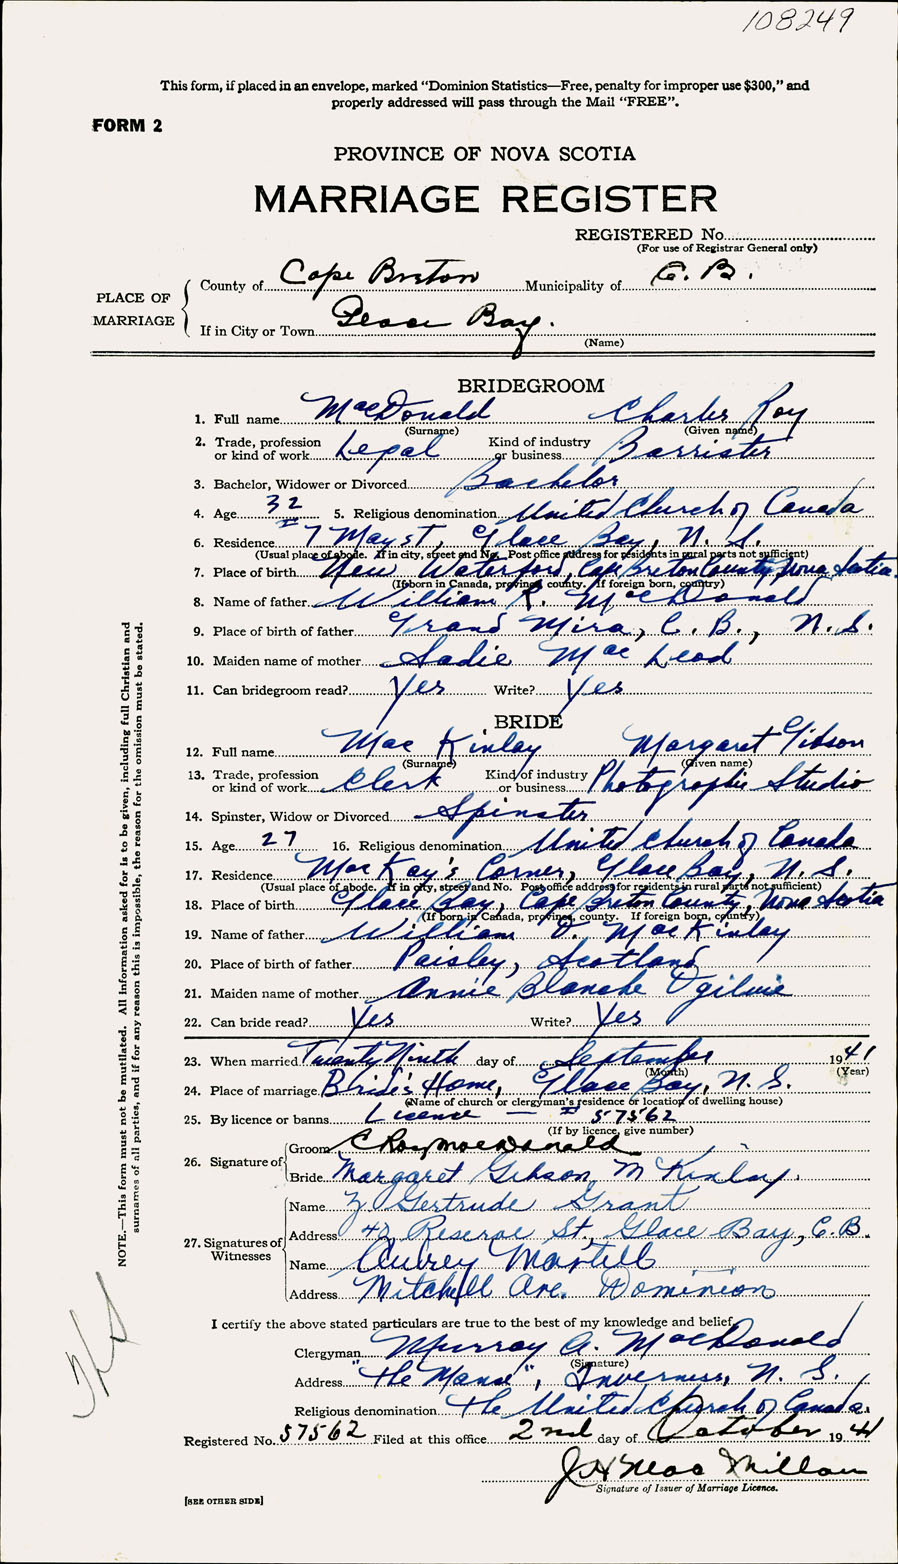 108249
This form, if placed in an envelope, marked "Dominion Statistics—Free, penalty for improper use $300," and
properly addressed will pass through the Mail "FREE".
FORM 2
PROVINCE OF NOVA SCOTIA
MARRIAGE REGISTER
REGISTERED No.
(For use of Registrar General only)
PLACE OF MARRIAGE
County of Cape Breton Municipality of C. B.
If in City or Town Glace Bay.
(Name)
BRIDEGROOM
1. Full name MacDonald Charles Roy
(Surname) (Given name)
2. Trade, profession or kind of work Legal Kind of industry or business Barrister
3. Bachelor, Widower or Divorced Bachelor
4. Age 32 5. Religious denomination United Church of Canada
6. Residence #7 May st, Glace Bay, N. S.
(Usual place of abode. If in city, street and No. Post office address for residents in rural parts not sufficient)
7. Place of birth New Waterford, Cape Breton County, Nova Scotia.
(If born in Canada, province, county. If foreign born, country)
8. Name of father William R. MacDonald
9. Place of birth of father Grand Mira, C. B., N. S.
10. Maiden name of mother Sadie MacLeod
11. Can bridegroom read? Yes Write? Yes
BRIDE
12. Full name MacKinlay Margaret Gibson
(Surname) (Given name)
13. Trade, profession or kind of work Clerk Kind of industry or business Photographic Studio
14. Spinster, Widow or Divorced Spinster
15. Age 27 16. Religious denomination United Church of Canada
17. Residence MacKay's Corner, Glace Bay, N. S.
(Usual place of abode. If in city, street and No. Post office address for residents in rural parts not sufficient)
18. Place of birth Glace Bay, Cape Breton County, Nova Scotia
(If born in Canada, province, county. If foreign born, country)
19. Name of father William O. MacKinlay
20. Place of birth of father Paisley, Scotland
21. Maiden name of mother Annie Blanche Ogilvie
22. Can bride read? Yes Write? Yes
23. When married Twenty Ninth day of September 1941
(Month) (Year)
24. Place of marriage Bride's Home, Glace Bay, N. S.
(Name of church or clergyman's residence or location of dwelling house)
25. By licence or banns Licence — # 57562
(If by licence, give number)
26. Signature of
Groom C Roy MacDonald
Bride Margaret Gibson McKinlay.
27. Signatures of Witnesses
Name Gertrude Grant
Address 42 Reserve St., Glace Bay, C. B.
Name Aubrey Martell
Address Mitchell Ave. Dominion
I certify the above stated particulars are true to the best of my knowledge and belief,
Clergyman Murray A. MacDonald
(Signature)
Address "The Manse", Inverness, N. S.
Religious denomination The United Church of Canada.
Registered No. 57562 Filed at this office 2nd day of October 1941
J H MacMillan
Signature of Issuer of Marriage Licence.
[SEE OTHER SIDE]
NOTE.—This form must not be mutilated. All information asked for is to be given, including full Christian and
surnames of all parties, and if for any reason this is impossible, the reason for the omission must be stated.